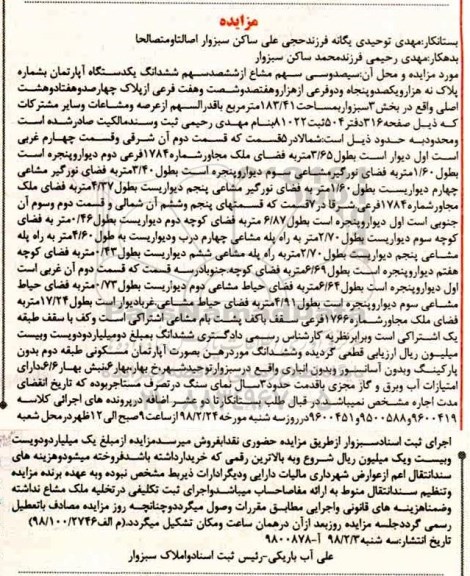 مزایده
بستانکار:مهدی توحیدی یگانه فرزندحجی علی ساکن سبزوار اصالتاومتصالحا
بدهکار:مهدی رحیمی فرزندمحمد ساکن سبزوار
مورد مزایده و محل آن:سیصدوسی سهم مشاع ازششصدسهم ششدانگ یکدستگاه آپارتمان بشماره
پلاک نه هزارویکصدوپنجاه ودوفرعی ازهزاروهفتصدوشصت وهفت فرعی ازپلاک چهارصدوهفتادوهشت
اصلی واقع در بخش۳سبزواربمساحت۱۸۳/۴۱مترمربع باقدرالسهم ازعرصه ومشاعات وسایر مشترکات
که ذیل صفحه۳۱۶دفتر۵۰۴ثبت۸۱۰۲۲بنام مهدی رحیمی ثبت وسندمالکیت صادرشده است
ومحدودبه حدود ذیل است:شمالادر۵قسمت که قسمت دوم آن شرقی وقسمت چهارم غربی
است اول دیوار است بطول۳/۶۵متربه فضای ملک مجاورشماره۱۷۸۴فرعی دوم دیواروپنجره است
بطول۱/۶۰متربه فضای نورگیر مشاعی سوم دیواروپنجره است بطول۳/۴۰متربه فضای نورگیر مشاعی
چهارم دیواریست بطول۱/۶۰متربه فضای نورگیر مشاعی پنجم دیواریست بطول۴/۳۷متربه فضای ملک
مجاورشماره۱۷۸۴فرعی شرقا در۷قسمت که قسمتهای پنجم وششم آن شمالی و قسمت دوم وسوم آن
جنوبی است اول دیواروپنجره است بطول۶/۸۷ متربه فضای کوچه دوم دیواریست بطول۰/۴۶متر به فضای
کوچه سوم دیواریست بطول۲/۷۰متر به راه پله مشاعی چهارم درب ودیواریست به طول۴/۶۰متر به راه پله
مشاعی پنجم دیواریست بطول۲/۷۰متربه راه پله مشاعی ششم دیواریست بطول۰/۴۳متربه فضای کوچه
هفتم دیواروپنجره است بطول۶/۶۹متربه فضای کوچه.جنوبادرسه قسمت که قسمت دوم آن غربی است
اول دیواروپنجره است بطول۶/۶۴متربه فضای حیاط مشاعی دوم دیواریست بطول۰/۷۳متربه فضای حیاط
مشاعی سوم دیواروپنجره است بطول۴/۹۱متربه فضای حیاط مشاعی.غربادیوار است بطول۱۷/۲۴متربه
فضای ملک مجاورشماره۱۷۶۶فرعی سقف باکف است بام مشاعی اشتراکی است وکف با سقف طبقه
یک اشتراکی است وبرابرنظریه کارشناس رسمی دادگستری ششدانگ بمبلغ دومیلیاردودویست وبیست
میلیون ریال ارزیابی قطعی گردیده وششدانگ موردرهن بصورت آپارتمان مسکونی طبقه دوم بدون
پارکینگ وبدون آسانسور وبدون انباری واقع درسبزوارتوحیدشهررخ بهاربهار۶نبش بهار۶/۱۶دارای
امتیازات آب وبرق و گاز مجزی باقدمت حدود۳سال نمای سنگ درتصرف مستاجربوده که تاریخ انقضای
مدت اجاره مشخص نمیباشد در قبال طلب بستانکارتا دو عشر اضافه درپرونده های اجرائی کلاسه
۹۶۰۰۴۱۹و۹۵۰۰۵۸۸و۹۶۰۰۴۵۱درروزسه شنبه مورخه۹۸/۲/۲۴ازساعت۹صبح الی۱۲ظهردرمحل شعبه
اجرای ثبت اسنادسبزوار ازطریق مزایده حضوری نقدابفروش میرسدمزایده ازمبلغ یک میلیاردودویست
وبیست ویک میلیون ریال شروع وبه بالاترین رقمی که خریدارداشته باشدفروخته میشودوهزینه های
سندانتقال اعم ازعوارض شهرداری مالیات دارایی ودیگرادارات ذیربط مشخص نبوده وبه عهده برنده مزایده
وتنظیم سندانتقال منوط به ارائه مفاصاحساب میباشدواجرای ثبت تکلیفی درتخلیه ملک مشاع نداشته
وضمناهزینه های قانونی واجرایی مطابق مقررات وصول میگرددوچنانچه روز مزایده مصادف باتعطیل
رسمی گرددجلسه مزایده روزبعد ازآن درهمان ساعت ومکان تشکیل میگردد.(م الف۹۸/۱۰۰/۲۷۴۶)
تاریخ انتشار:سه شنبه ۹۸/۲/۳ آ-۹۸۰۰۸۷۸
علی آب باریکی-رئیس ثبت اسنادواملاک سبزوار